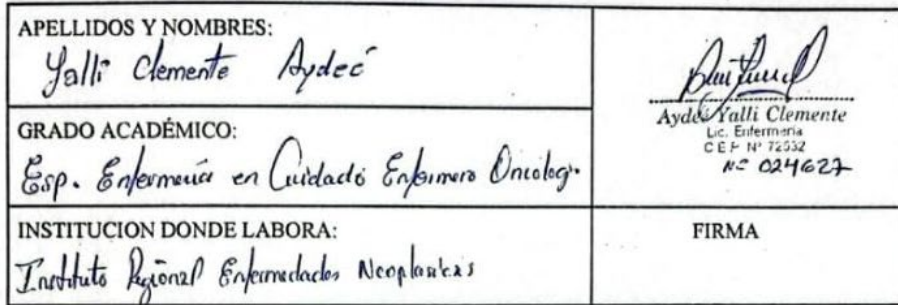 APELLIDOS Y NOMBRES:
Yalli Clemente Aydeé
GRADO ACADÉMICO:
Esp. Enfermería en Cuidado Enfermero Oncológ.
INSTITUCION DONDE LABORA:
Instituto Regional Enfermedades Neoplasicas
Aydeé Yalli Clemente
Lic. Enfermería
CEP Nº 72532
Nº 024627
FIRMA